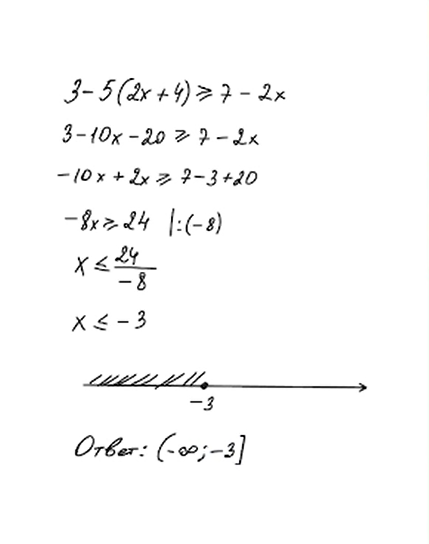 3 - 5(2x + 4) ⩾ 7 - 2x
3 - 10x - 20 ⩾ 7 - 2x
-10x + 2x ⩾ 7 - 3 + 20
-8x ⩾ 24 |:(-8)
x ≤ 24/-8
x ≤ -3
-3
Ответ: (-∞; -3]